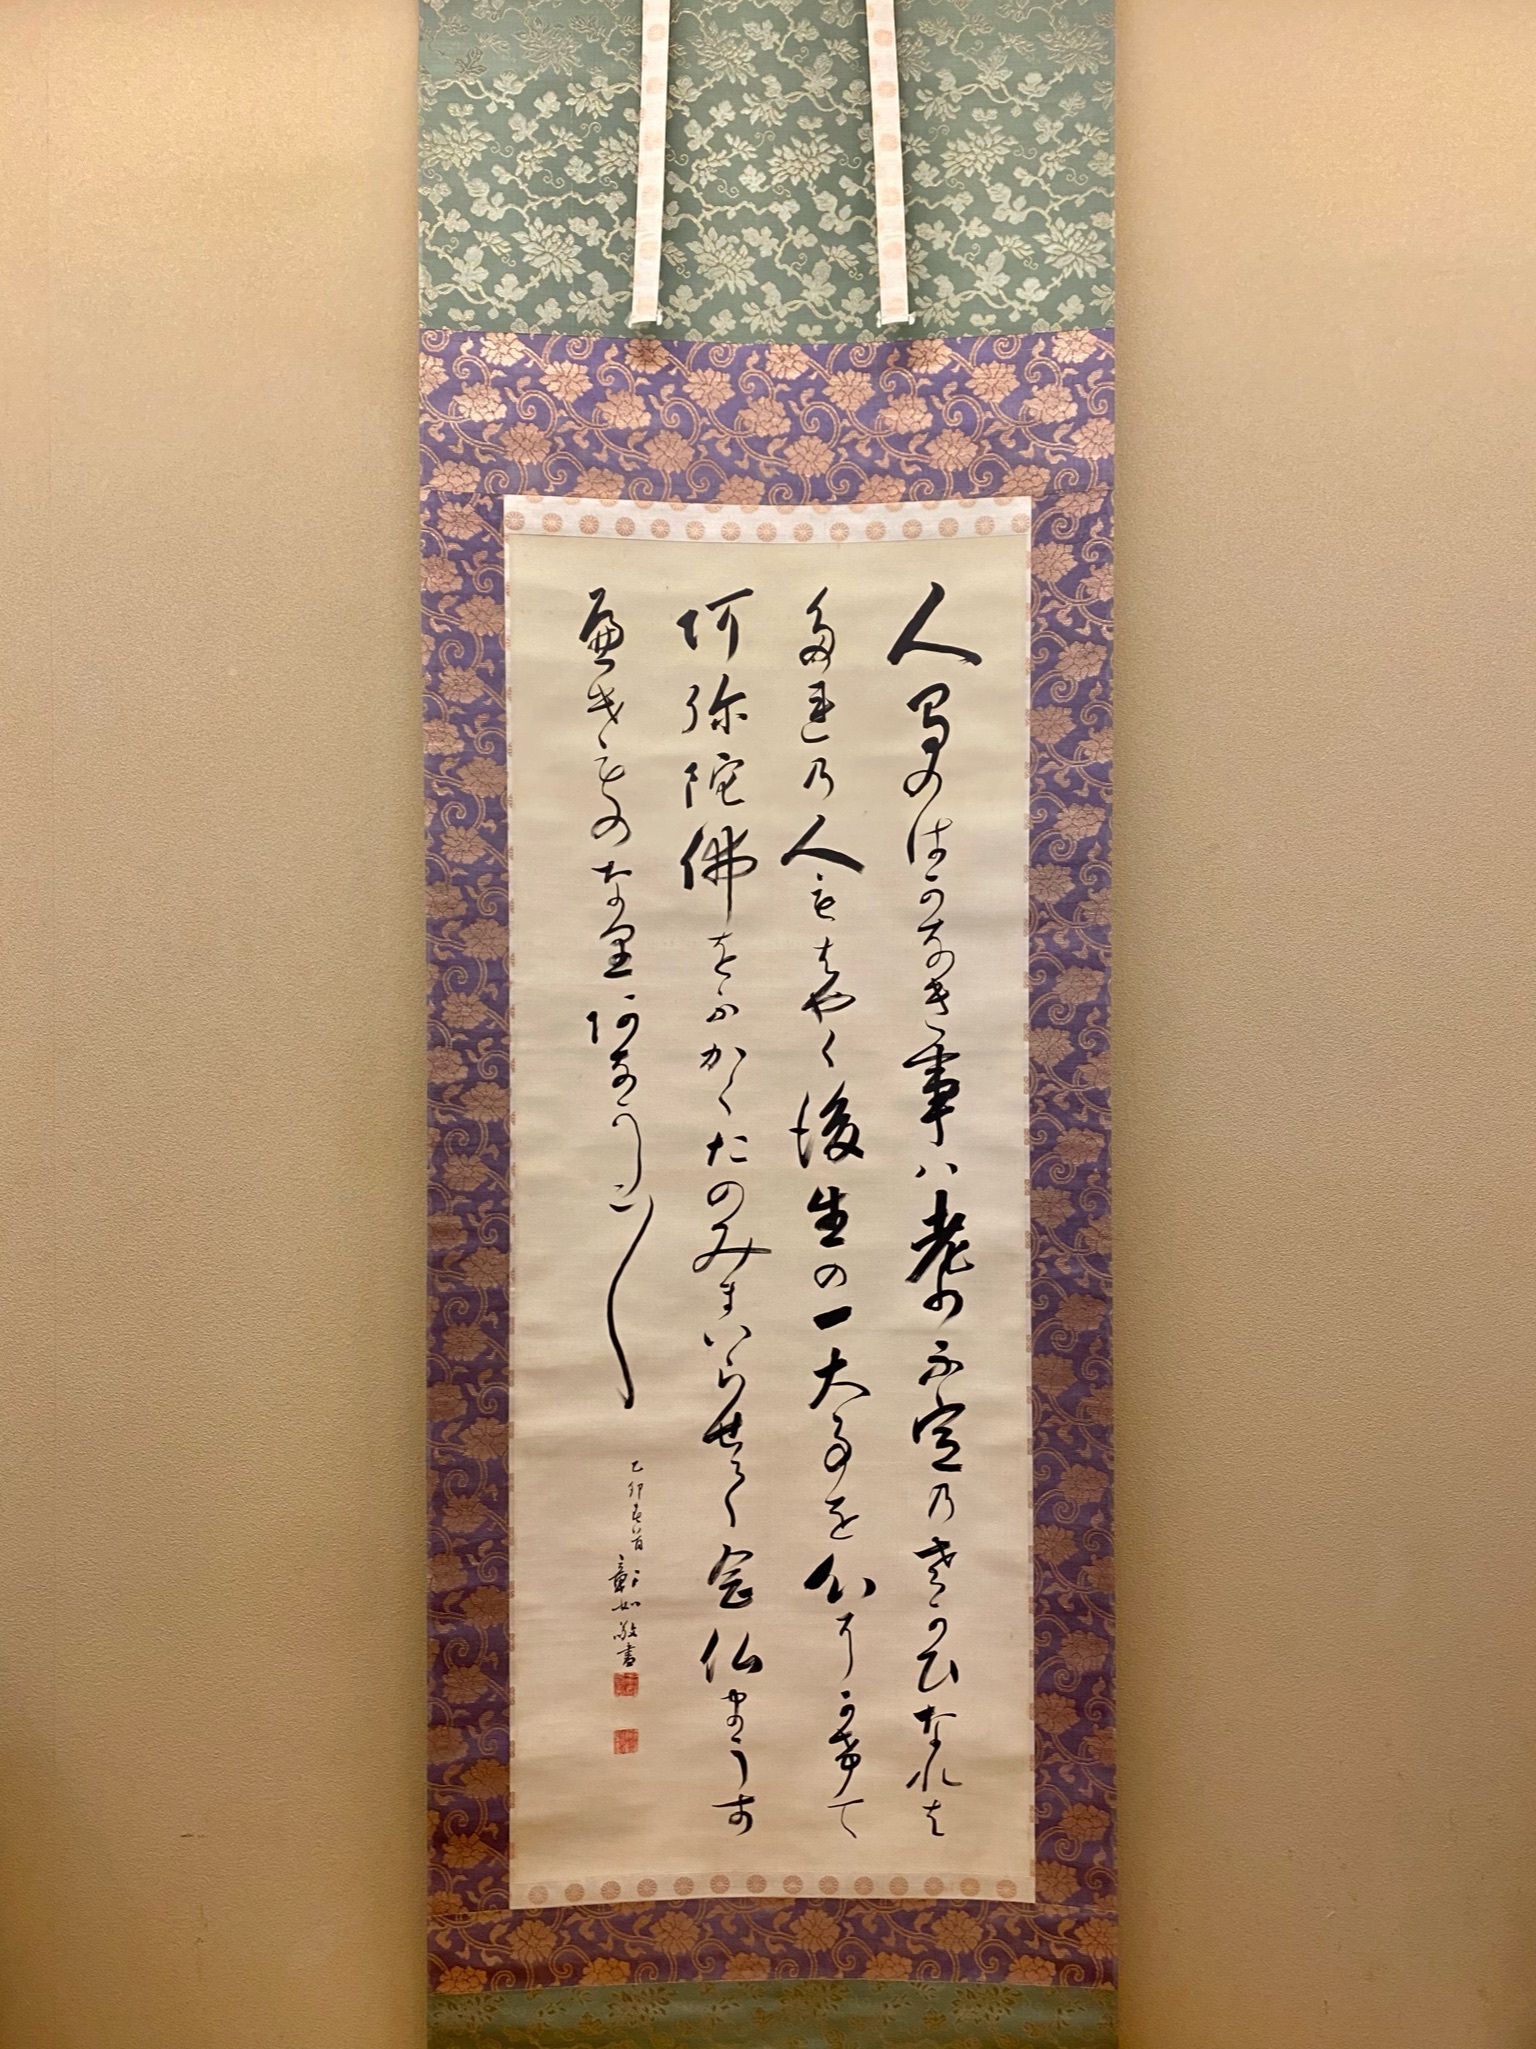 人間のはかなき事は老少不定のさかひなれは
たれの人もはやく後生の一大事を心にかけて
阿弥陀佛をふかくたのみまいらせて念仏まうす
へきものなりあなかしこ〱
乙卯春首 彰如敬書